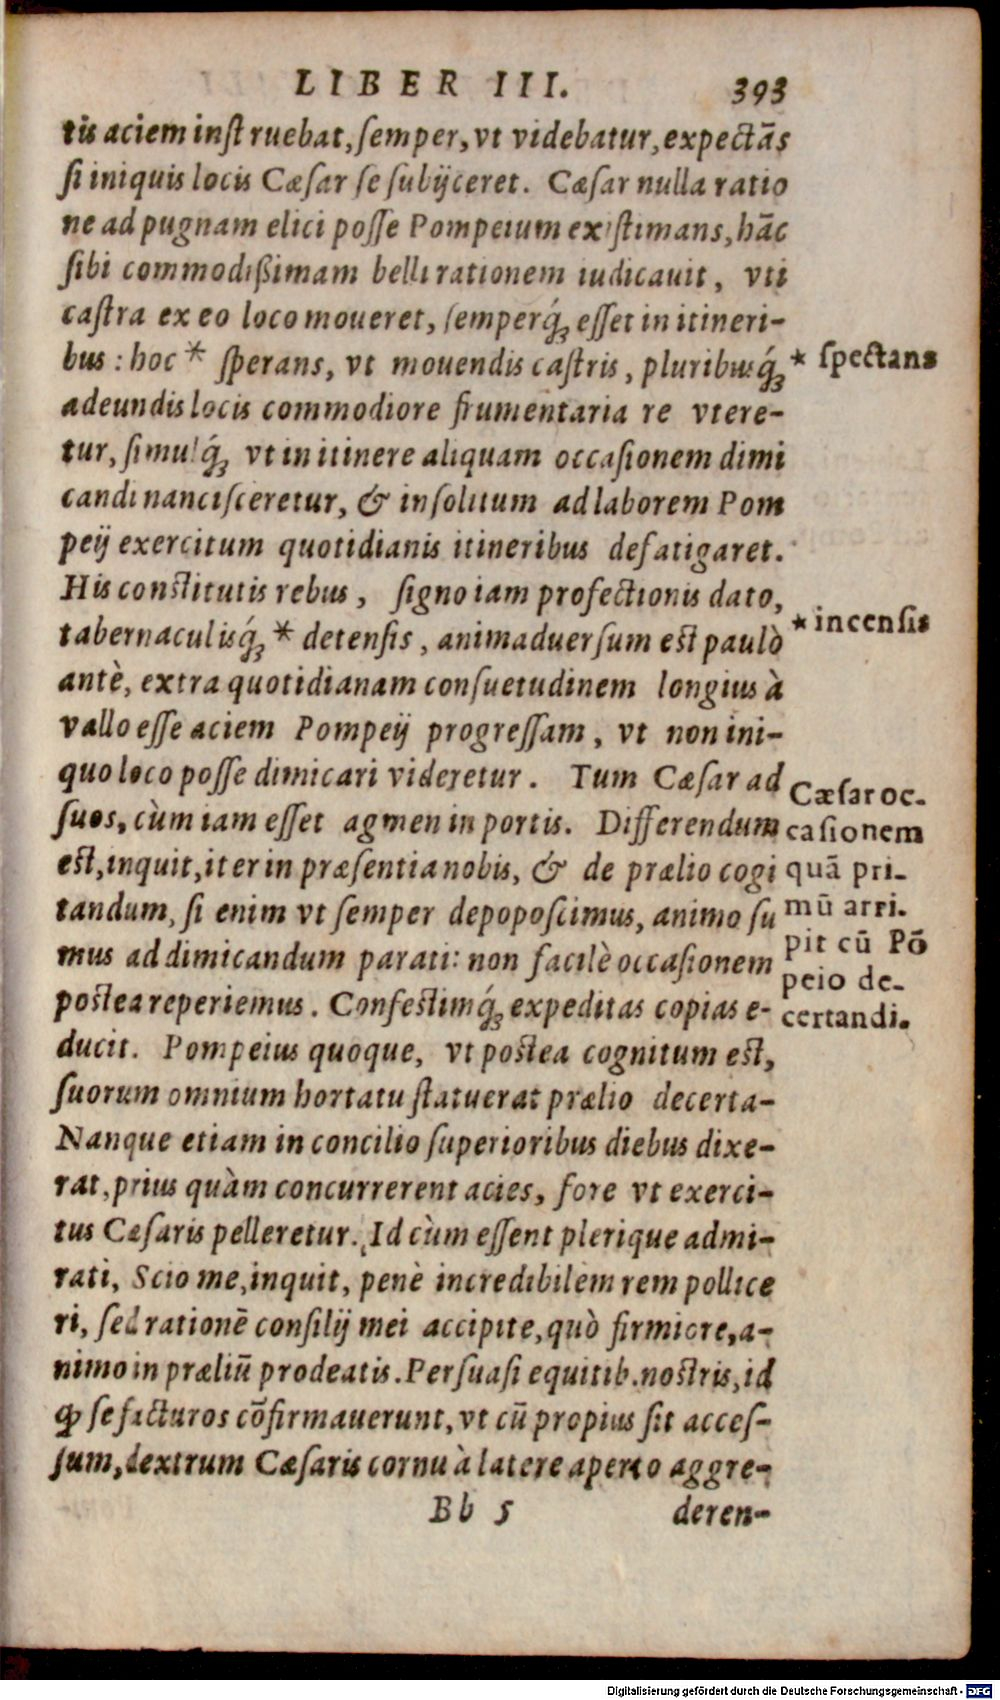 LIBER III. 393
tis aciem instruebat, semper, vt videbatur, expectãs
si iniquis locis Cæsar se subijceret. Cæsar nulla ratio
ne ad pugnam elici posse Pompeium existimans, hãc
sibi commodißimam belli rationem iudicauit, vti
castra ex eo loco moueret, semperq́; esset in itineri-
bus: hoc * sperans, vt mouendis castris, pluribusq́;
* spectans
adeundis locis commodiore frumentaria re vtere-
tur, simulq́; vt in itinere aliquam occasionem dimi
candi nancisceretur, & insolitum ad laborem Pom
peij exercitum quotidianis itineribus defatigaret.
His constitutis rebus, signo iam profectionis dato,
tabernaculisq́; * detensis, animaduersum est paulò
* incensis
antè, extra quotidianam consuetudinem longius à
vallo esse aciem Pompeij progressam, vt non ini-
quo loco posse dimicari videretur. Tum Cæsar ad
suos, cùm iam esset agmen in portis. Differendum
est, inquit, iter in præsentia nobis, & de prælio cogi
tandum, si enim vt semper depoposcimus, animo su
mus ad dimicandum parati: non facilè occasionem
postea reperiemus. Confestimq́; expeditas copias e-
ducit. Pompeius quoque, vt postea cognitum est,
suorum omnium hortatu statuerat prælio decerta-
Nanque etiam in concilio superioribus diebus dixe-
rat, prius quàm concurrerent acies, fore vt exerci-
tus Cæsaris pelleretur. Id cùm essent plerique admi-
rati, Scio me, inquit, penè incredibilem rem pollice
ri, sed rationẽ consilij mei accipite, quò firmiore, a-
nimo in præliũ prodeatis. Persuasi equitib. nostris, id
ꝙ se facturos cõfirmauerunt, vt cũ propius sit acces-
sum, dextrum Cæsaris cornu à latere aperto aggre-
Cæsar oc-
casionem
quã pri-
mũ arri-
pit cũ Põ
peio de-
certandi.
Bb 5 deren-
Digitalisierung gefördert durch die Deutsche Forschungsgemeinschaft - DFG